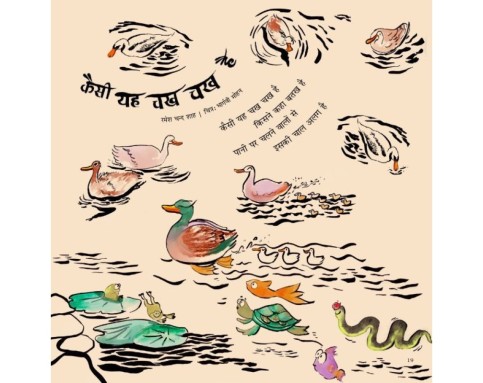 कैसी यह चख चख है
रमेश चन्द्र शाह | चित्र: भार्गवी मोहन
कैसी यह चख चख है
किसने कहा बतख है
पानी पर चलने वालों से
इसकी चाल अलग है